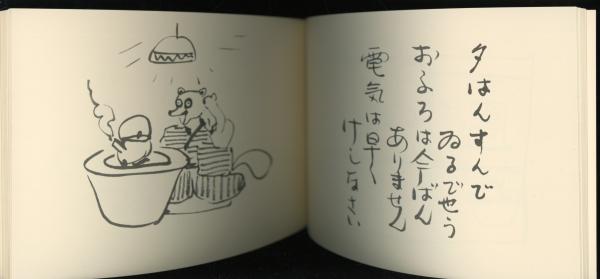 夕はんすんで
ゐるでせう
おふろは今ばん
ありません
電気は早く
けしなさい